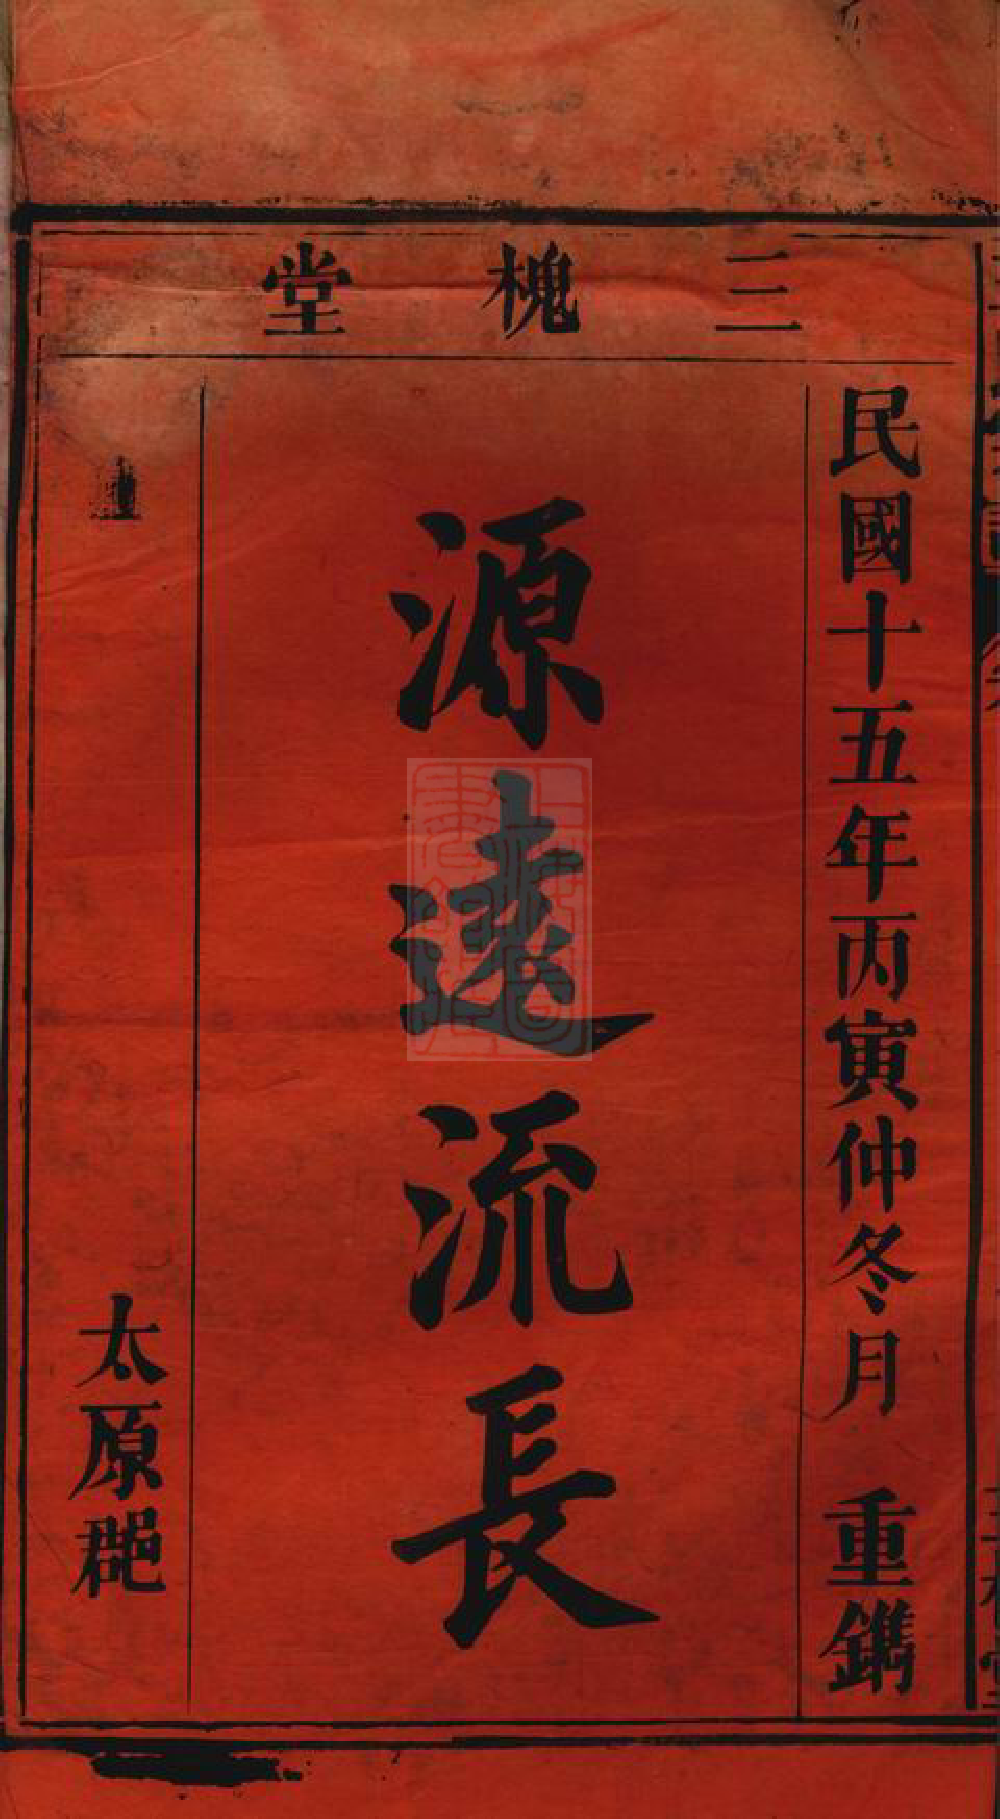 三槐堂
民國十五年丙寅仲冬月 重鐫
源遠流長
太原郡